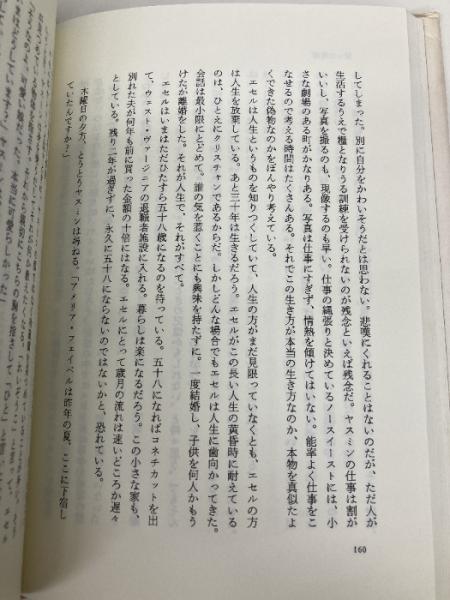 してしまった。別に自分をかわいそうだとは思わない。悲嘆にくれることはないのだが、ただ人が
生活するうえで糧となりうる訓練を受けられないのが残念といえば残念だ。ヤスミンの仕事は割が
いいし、写真を撮るのも、現像するのも早い。仕事の縄張りと決めているノースイーストには、小
さな劇場のある町がかなりある。写真は仕事にすぎず、情熱を傾けてはいない。能率よく仕事をこ
なせるので考える時間はたくさんある。それでこの生き方が本当の生き方なのか、本物を真似たよ
くできた偽物なのかをぼんやり考えている。
エセルは人生というものを知りつくしていて、人生の方がまだ見限っていなくとも、エセルの方
は人生を放棄している。あと三十年は生きるだろう。エセルがこの長い人生の黄昏時に耐えている
のは、ひとえにクリスチャンであるからだ。しかしどんな場合でもエセルは人生に歯向かってきた。
会話は最小限にとどめて。誰の気を惹くことにも興味を持たずに。一度結婚し、子供を何人かもう
けたが離婚をした。それが人生で、それがすべて。
エセルはいまはただひたすら五十八歳になるのを待っている。五十八になればコネチカットを出
て、ウェスト・ヴァージニアの退職者施設に入れる。暮らしは楽になるだろう。この小さな家も、
別れた夫が何年も前に買った金額の十倍にはなる。エセルにとって歳月の流れは速いどころか遅々
としている。残り二年が過ぎずに、永久に五十八にならないのではないかと、恐れている。
木曜日の夕方、とうとうヤスミンは尋ねる。「アメリア・フェイベルは昨年の夏、ここに下宿し
ていたんですか?」
160